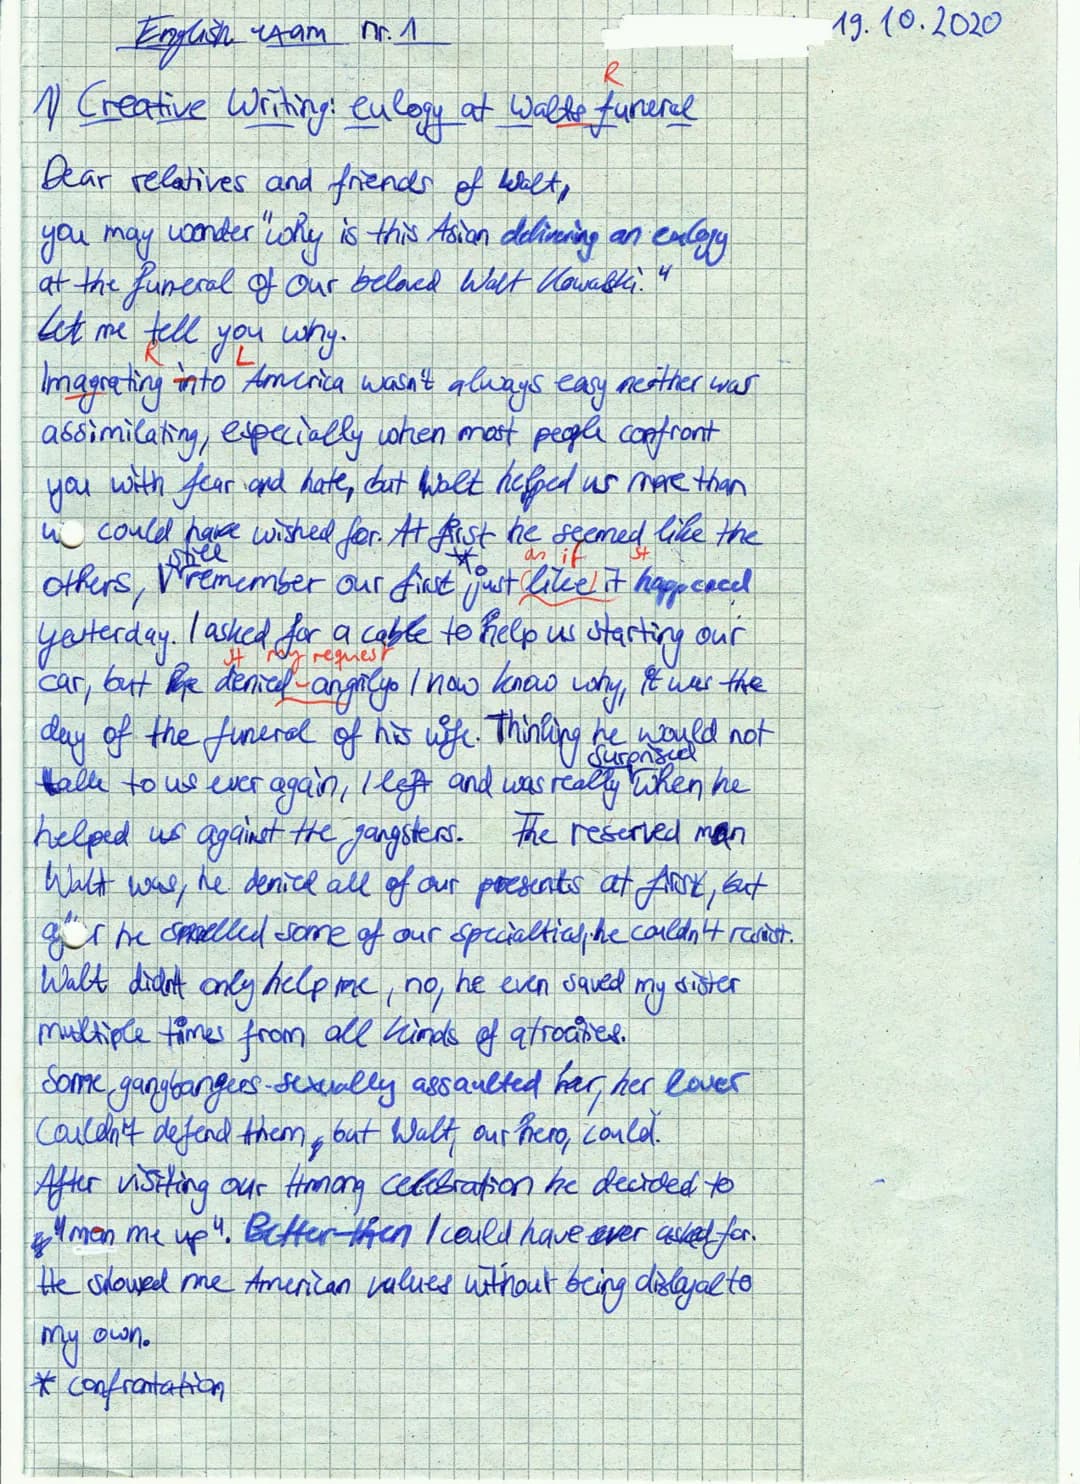 English exam nr. 1 19.10.2020
R
1) Creative Writing: eulogy at Walts funeral
Dear relatives and friends of Walt,
you may wonder "why is this Asian delivering an eulogy
at the funeral of our beloved Walt Kowalski."
Let me tell you why.
R L
Imagrating into America wasn't always easy neither was
assimilating, especially when most people confront
you with fear and hate, but Walt helped us more than
we could have wished for. At first he seemed like the
still * as if st
others, I remember our first just like it happened
yesterday. I asked for a cable to help us starting our
st my request
car, but he denied angrily. I now know why, it was the
day of the funeral of his wife. Thinking he would not
surprised
talk to us ever again, I left and was really when he
helped us against the gangsters. The reserved man
Walt was, he denied all of our presents at first, but
after he smelled some of our specialties, he couldn't resist.
Walt didn't only help me, no, he even saved my sister
multiple times from all kinds of atrocities.
Some gangbangers sexually assaulted her, her lover
couldn't defend them, but Walt, our hero, could.
After visiting our Hmong celebration he decided to
"man me up". Better then I could have ever asked for.
He showed me American values without being disloyal to
my own.
* confrontation